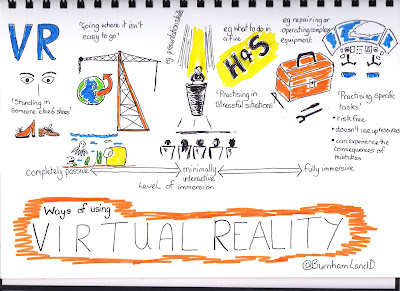 VR
'Going where it isn't
easy to go'
'Standing in
someone else's shoes'
eg presentation skills
eg what to do in
a fire
H&S
'Practising in
stressful situations'
eg repairing or
operating complex
equipment
'Practising specific
tasks'
• risk free
• doesn't use up resources
• can experience the
consequences of
mistakes
completely passive
minimally
interactive
fully immersive
Level of immersion
Ways of using
VIRTUAL REALITY
@BurnhamLandD